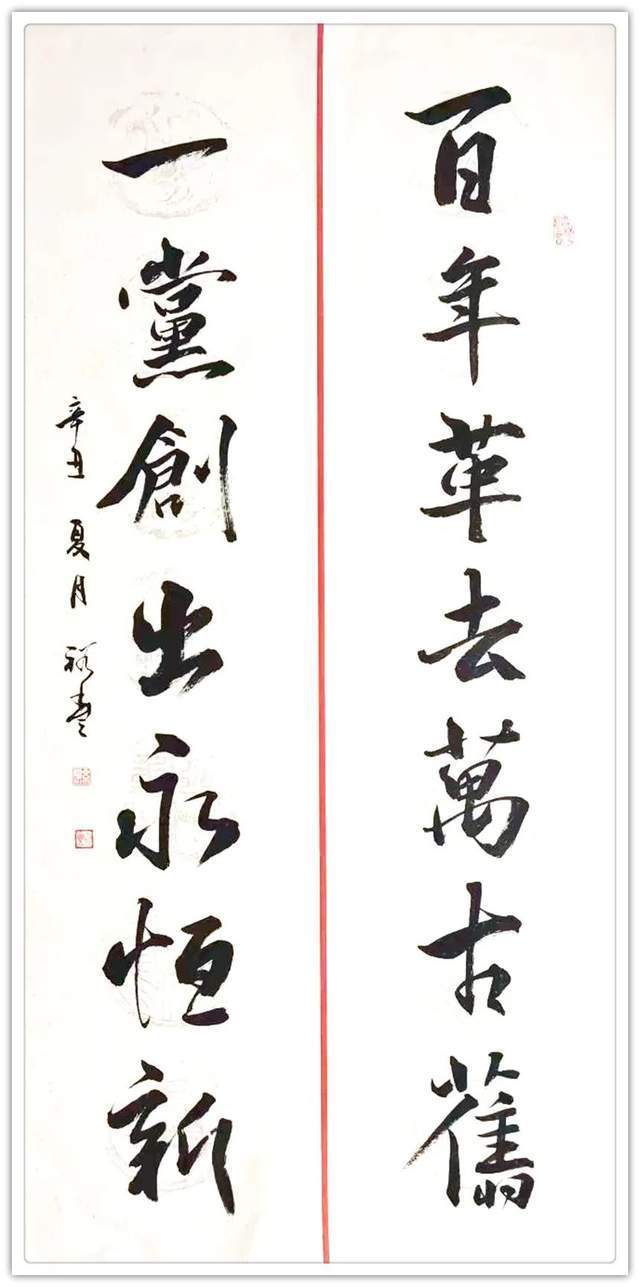 百年革去萬古舊
一黨創出永恒新
辛丑夏月